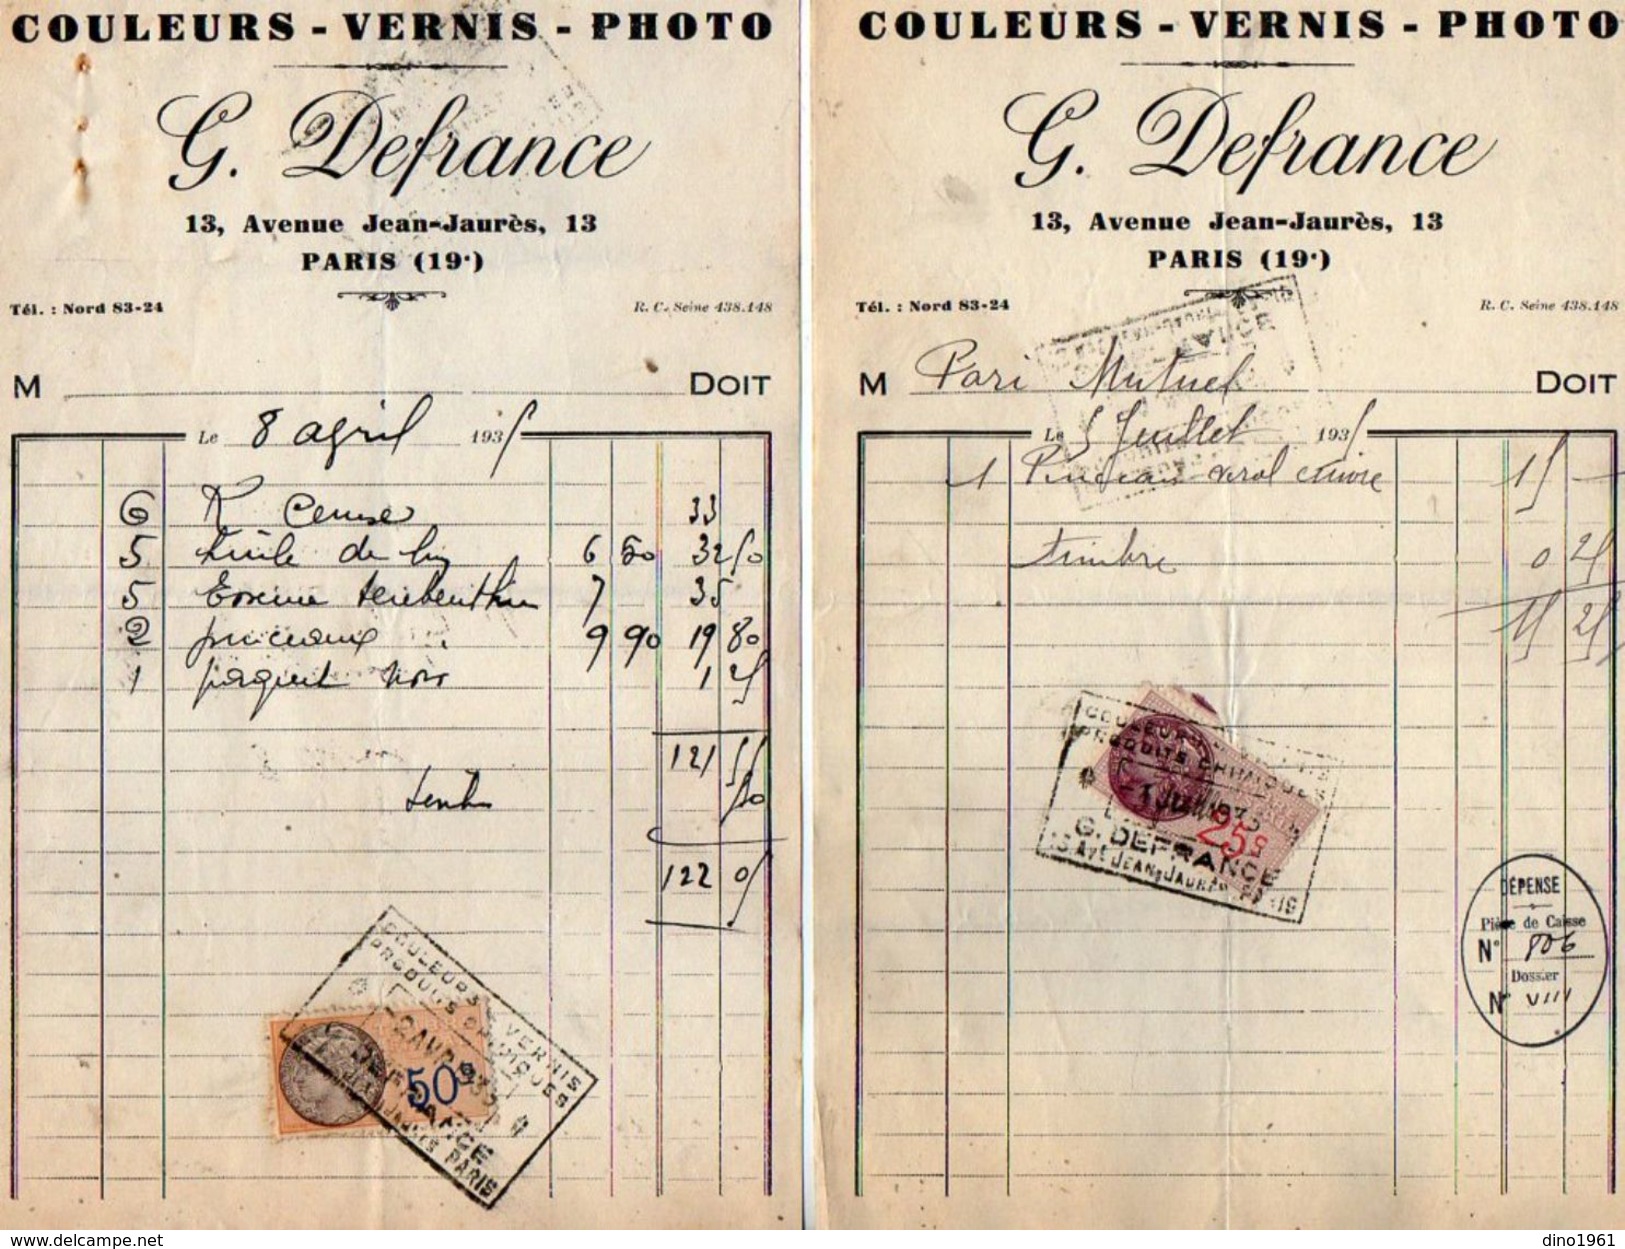 COULEURS - VERNIS - PHOTO
G. Defrance
13, Avenue Jean-Jaurès, 13
PARIS (19e)
Tél. : Nord 83-24
R. C. Seine 438.148
M DOIT
Le 8 avril 1935
6 K Ceruse 33
5 huile de lin 6 50 32 50
5 Essence terebenthine 7 35
2 pinceaux 9 90 19 80
1 paquet noir 1 25
121 55
timbre 50
122 05
COULEURS VERNIS
PRODUITS CHIMIQUES
50
JEAN JAURÈS PARIS
COULEURS - VERNIS - PHOTO
G. Defrance
13, Avenue Jean-Jaurès, 13
PARIS (19e)
Tél. : Nord 83-24
R. C. Seine 438.148
M Pari Mutuel DOIT
Le 5 Juillet 1935
1 Pinceau virol cuivre 15 -
timbre 0 25
15 25
COULEURS
PRODUITS CHIMIQUES
25
G. DEFRANCE
13 AVE JEAN-JAURÈS PARIS
DÉPENSE
Pièce de Caisse
N° 806
Dossier
N° VIII
delcampe.net
dino1961